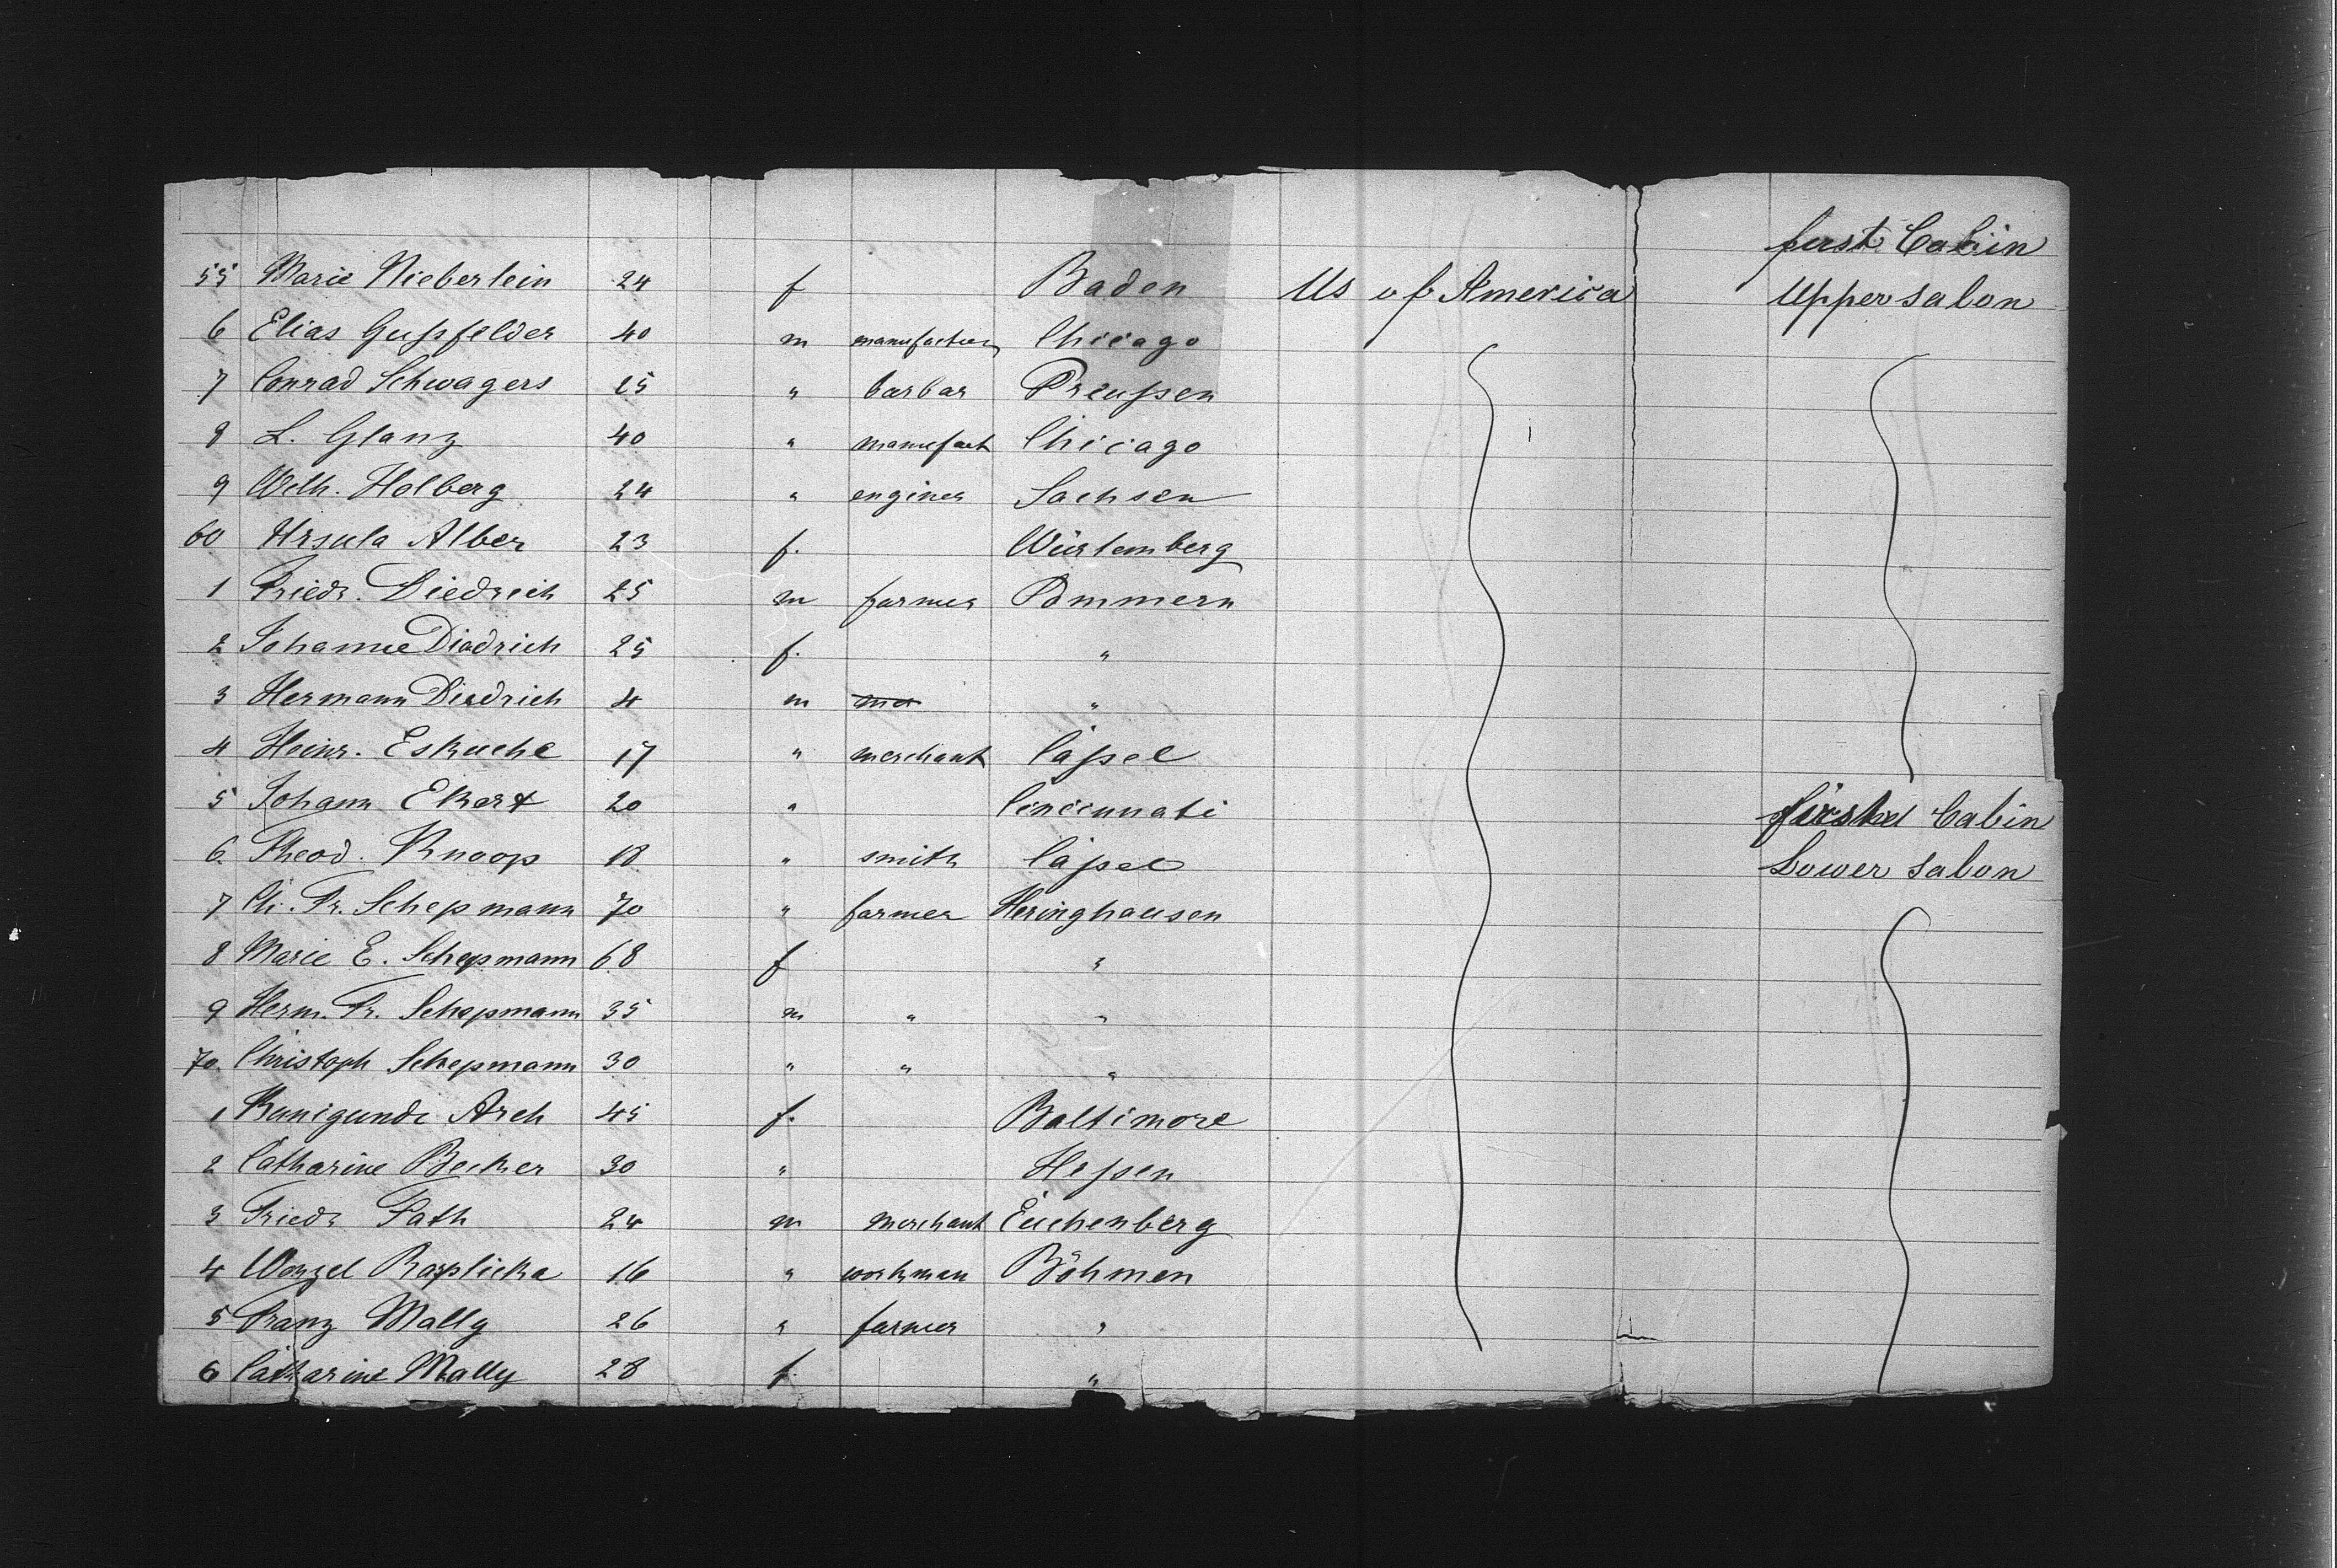 first Cabin
55 Marie Nieberlein 24 f Baden Us of America Upper salon
6 Elias Gußfelder 40 m manufactur Chicago
7 Conrad Schwagers 25 " barbar Preußen
8 L. Glanz 40 " manufact Chicago
9 Wilh. Holberg 24 " engines Sachsen
60 Ursula Alber 23 f. Würtemberg
1 Friedr. Diedrich 25 m farmer Pommern
2 Johanne Diedrich 25 f. "
3 Hermann Diedrich 4 m "
4 Heinr. Eskuche 17 " merchant Caßel
5 Johann Ekert 20 " Cincinnati first Cabin
6 Theod. Knoop 18 " smith Caßel Lower salon
7 Ch. Fr. Schepmann 70 " farmer Heringhausen
8 Marie E. Schepmann 68 f "
9 Herm. Fr. Schepmann 35 m " "
70 Christoph Schepmann 30 " " "
1 Kunigunde Arch 45 f. Baltimore
2 Catharine Becker 30 " Heßen
3 Friedr Fath 24 m merchant Euchenberg
4 Wenzel Rasplicka 16 " workman Böhmen
5 Franz Mally 26 " farmer "
6 Catharine Mally 28 f. "